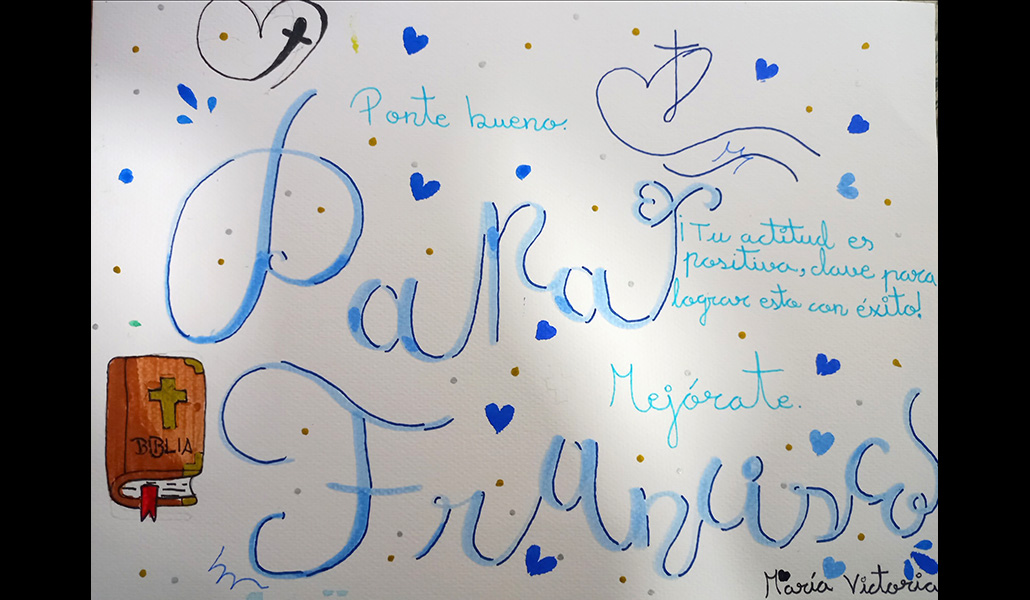 Ponte bueno.
Para
¡Tu actitud es
positiva, clave para
lograr esto con éxito!
Mejórate.
BIBLIA
Francisco
María Victoria